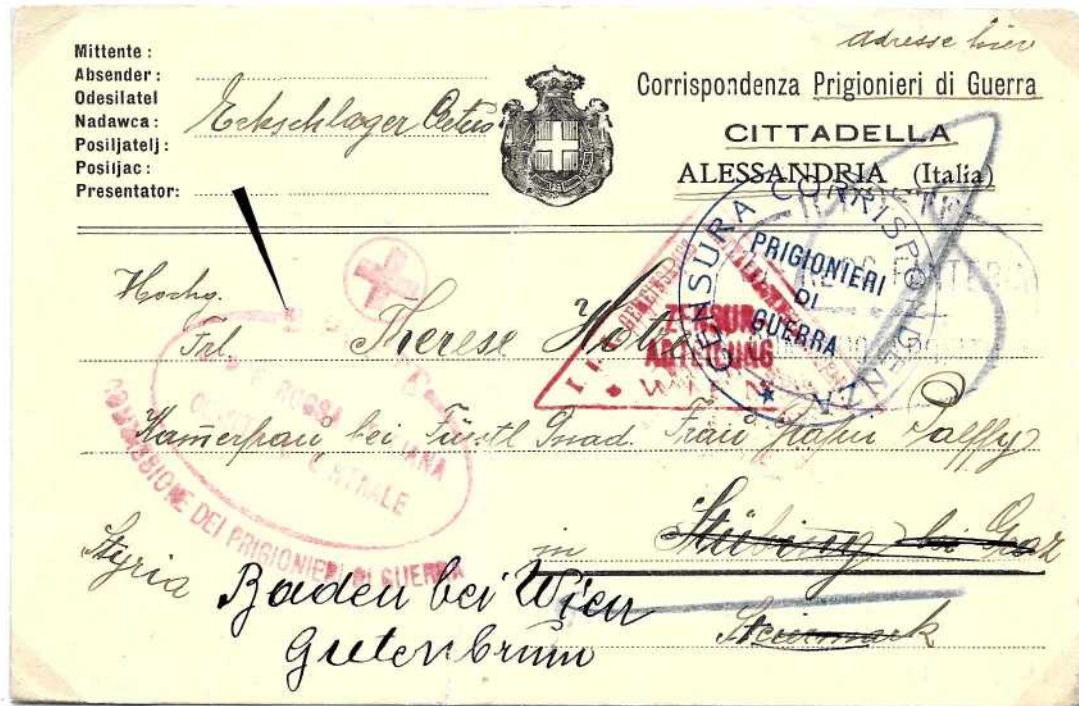 adresse hier
Mittente :
Absender :
Odesilatel
Nadawca :
Posiljatelj :
Posiljac :
Presentator:
Eckschlager
Corrispondenza Prigionieri di Guerra
CITTADELLA
ALESSANDRIA (Italia)
CENSURA CORRISPONDENZA
PRIGIONIERI
DI
GUERRA
ZENSUR
ABTEILUNG
Hochg.
Frl. Therese
ROSSA ITALIANA
COMMISSIONE DEI PRIGIONIERI DI GUERRA
Kam̅erfrau bei Fürstl Gnad. Frau Gräfin Palffy
in Stübing bei Graz
Styria
Baden bei Wien
Steiermark
Gutenbrunn